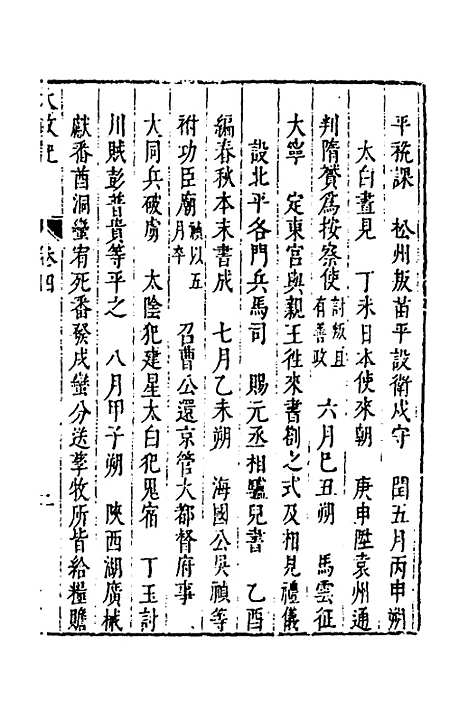 平稅課　松州叛苗平設衛戍守　閏五月丙申朔
太白晝見　丁未日本使來朝　庚申陞袁州通
判隋贇爲按察使討叛且有善政　六月己丑朔　馬雲征
大寧　定東宮與親王徃來書劄之式及相見禮儀
設北平各門兵馬司　賜元丞相驢兒書　乙酉
編春秋本末書成　七月乙未朔　海國公吳禎等
祔功臣廟禎以五月卒　召曹公還京管大都督府事
大同兵破虜　太陰犯建星太白犯鬼宿　丁玉討
川賊彭普貴等平之　八月甲子朔　陜西湖廣械
獻番酋洞蠻宥死番發戍蠻分送孳牧所皆給糧贍
大政記
卷四